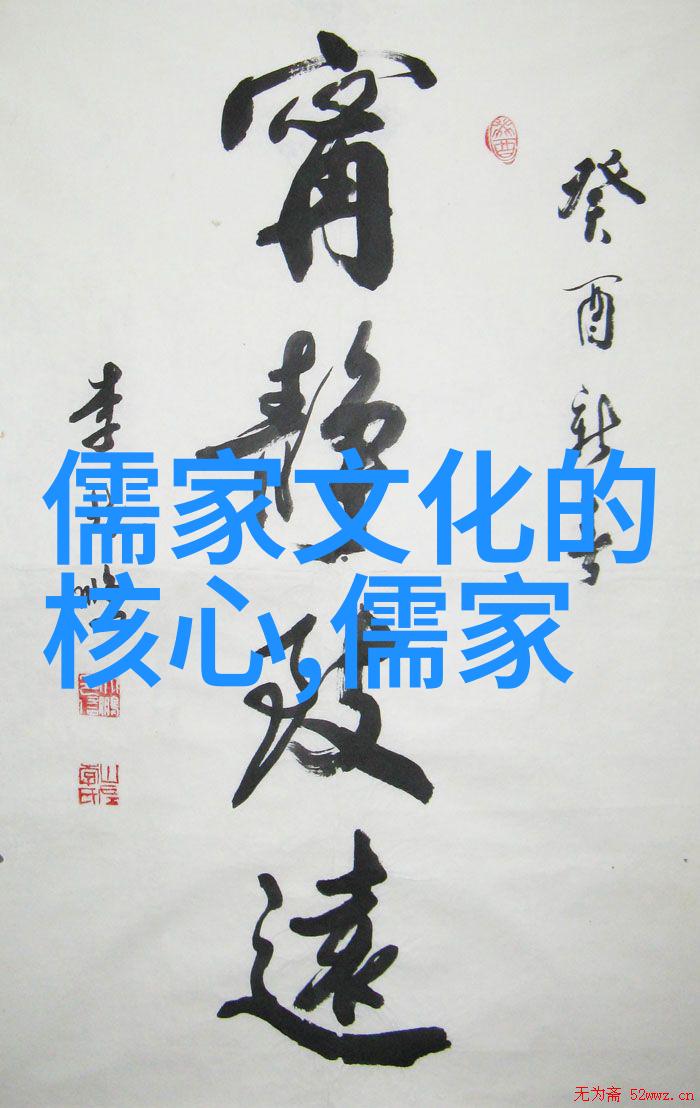 癸酉新
甯靜致遠
李
儒家文化的
核心,儒家
无为斋 52wwz.cn